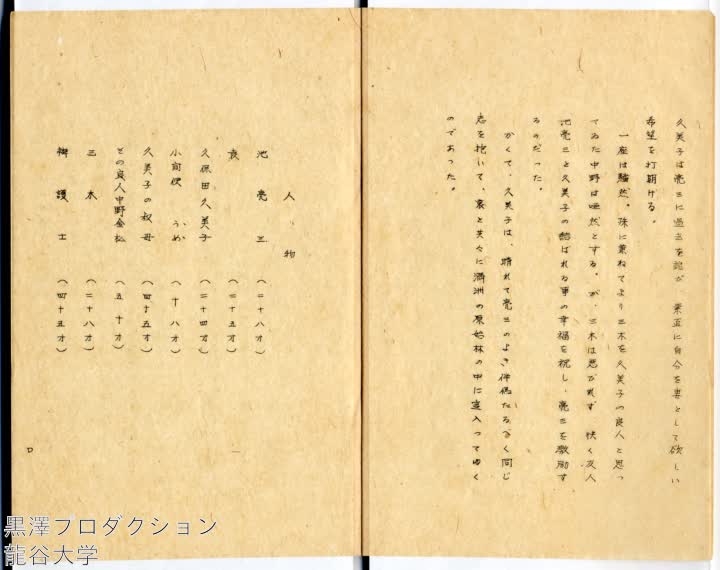 久美子は亮三に過去を語が、業正に自分を妻として欲しい
希望を打明ける。
一座は騒然。殊に兼ねてより三木を久美子の良人と思っ
てゐた中野は唖然とする。が、三木は悪びれず 快く友人
池亮三と久美子の結ばれる事の幸福を祝し、亮三を激励す
るのだった。
かくて、久美子は、晴れて亮三のよき伴侶たるべく同じ
志を抱いて、哀と共々に満洲の原始林の中に這入ってゆく
のであった。
人 物
池 亮 三 (二十八才)
哀 (二十五才)
久保田久美子 (二十四才)
小間使 うめ (十八才)
久美子の叔母 (四十五才)
その良人中野金松 (五十才)
三 木 (二十八才)
辯 護 士 (四十五才)
黒澤プロダクション
龍谷大学